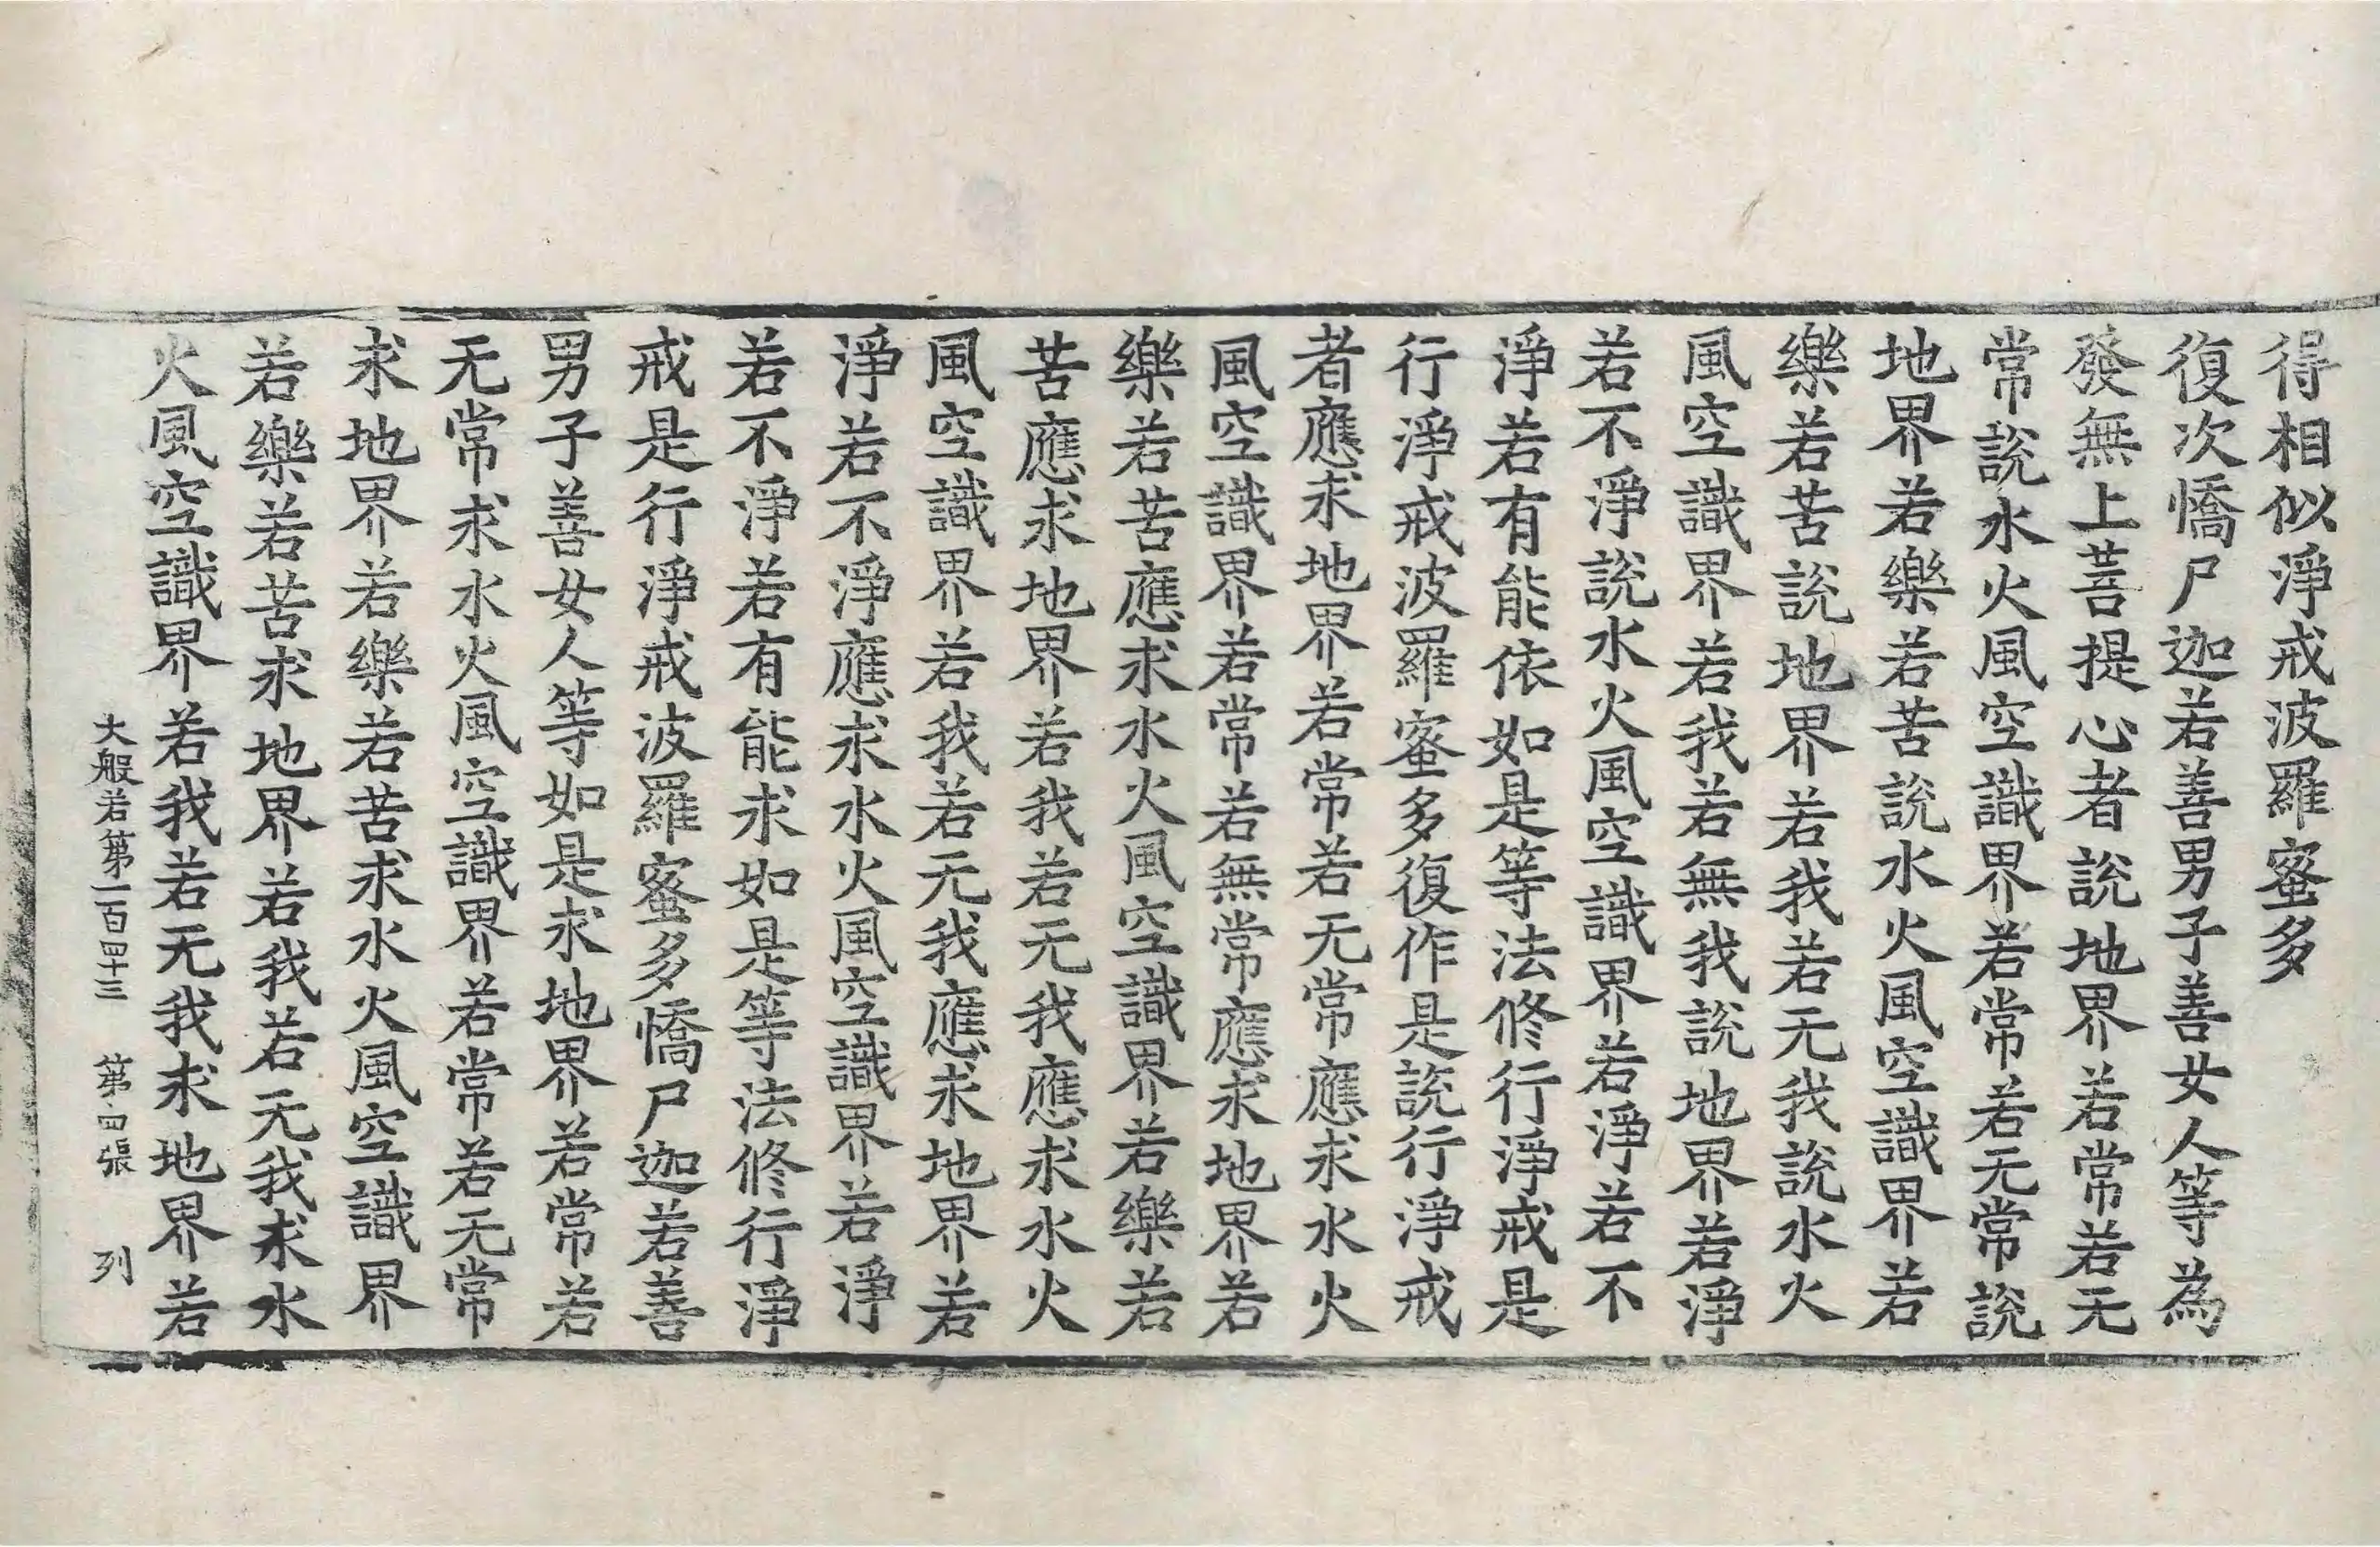 得相似淨戒波羅蜜多
復次憍尸迦若善男子善女人等為
發無上菩提心者說地界若常若无
常說水火風空識界若常若无常說
地界若樂若苦說水火風空識界若
樂若苦說地界若我若无我說水火
風空識界若我若無我說地界若淨
若不淨說水火風空識界若淨若不
淨若有能依如是等法修行淨戒是
行淨戒波羅蜜多復作是說行淨戒
者應求地界若常若无常應求水火
風空識界若常若無常應求地界若
樂若苦應求水火風空識界若樂若
苦應求地界若我若无我應求水火
風空識界若我若无我應求地界若
淨若不淨應求水火風空識界若淨
若不淨若有能求如是等法修行淨
戒是行淨戒波羅蜜多憍尸迦若善
男子善女人等如是求地界若常若
无常求水火風空識界若常若无常
求地界若樂若苦求水火風空識界
若樂若苦求地界若我若无我求水
火風空識界若我若无我求地界若
大般若第一百四十三 第四張 列